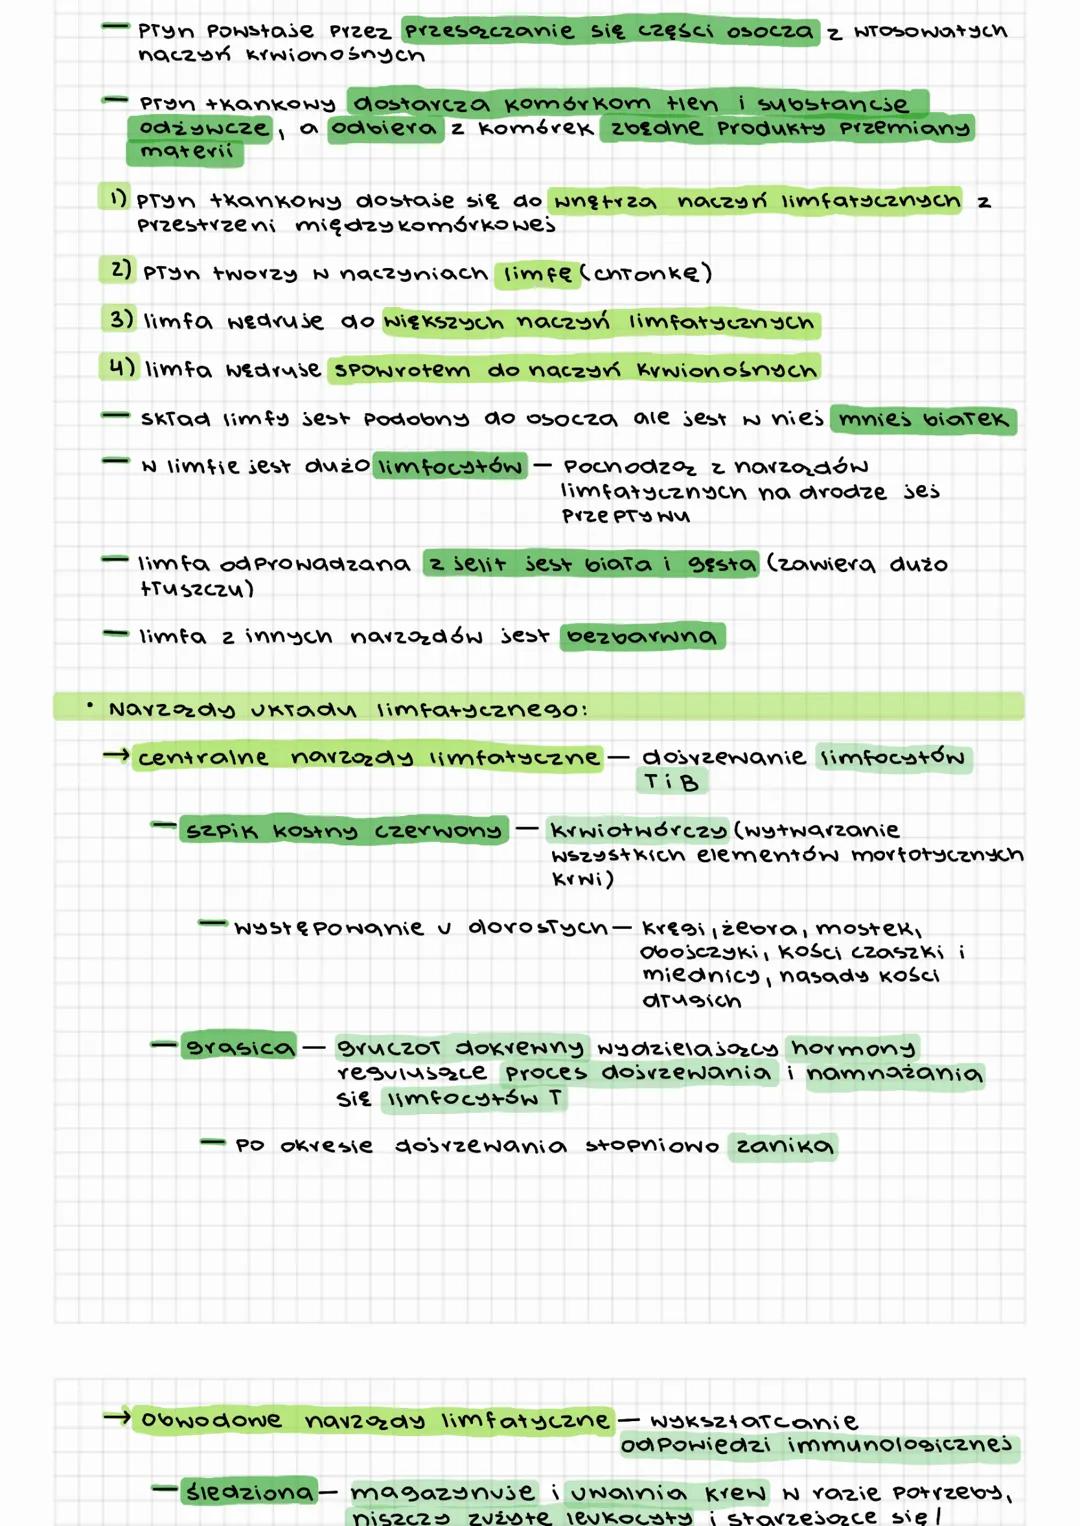 – płyn powstaje przez przesączanie się części osocza z włosowatych
naczyń krwionośnych
– płyn tkankowy dostarcza komórkom tlen i substancje
odżywcze, a odbiera z komórek zbędne produkty przemiany
materii
1) płyn tkankowy dostaje się do wnętrza naczyń limfatycznych z
przestrzeni międzykomórkowej
2) płyn tworzy w naczyniach limfę (chłonkę)
3) limfa wędruje do większych naczyń limfatycznych
4) limfa wędruje spowrotem do naczyń krwionośnych
– skład limfy jest podobny do osocza ale jest w niej mniej białek
– w limfie jest dużo limfocytów – pochodzą z narządów
limfatycznych na drodze jej
przepływu
– limfa odprowadzana z jelit jest biała i gęsta (zawiera dużo
tłuszczu)
– limfa z innych narządów jest bezbarwna
• Narządy układu limfatycznego:
→ centralne narządy limfatyczne – dojrzewanie limfocytów
T i B
– szpik kostny czerwony – krwiotwórczy (wytwarzanie
wszystkich elementów morfotycznych
krwi)
– występowanie u dorosłych – kręgi, żebra, mostek,
obojczyki, kości czaszki i
miednicy, nasady kości
długich
– grasica – gruczoł dokrewny wydzielający hormony
regulujące proces dojrzewania i namnażania
się limfocytów T
– po okresie dojrzewania stopniowo zanika
→ obwodowe narządy limfatyczne – wykształcanie
odpowiedzi immunologicznej
– śledziona – magazynuje i uwalnia krew w razie potrzeby,
niszczy zużyte leukocyty i starzejące się /